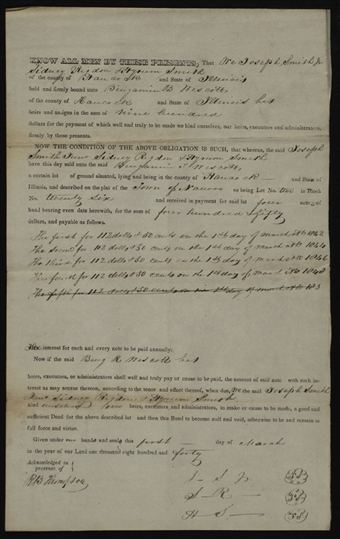 KNOW ALL MEN BY THESE PRESENTS, That We Joseph Smith Jr
Sidney Rigdon & Hyrum Smith
of the county of Hancock and State of Illinois
held and firmly bound unto Benjamin R Wescott
of the county of Hancock and State of Illinois his
heirs and assigns in the sum of nine hundred
dollars for the payment of which well and truly to be made we bind ourselves, our heirs, executors and administrators,
firmly by these presents.
NOW THE CONDITION OF THE ABOVE OBLIGATION IS SUCH, that whereas, the said Joseph
Smith Junr Sidney Rigdon & Hyrum Smith
have this day sold unto the said Benjamin R Wescott
a certain lot of ground situated, lying and being in the county of Hancock and State of
Illinois, and described on the plat of the Town of Nauvoo as being Lot No. in Block
No. Twenty Six and received in payment for said lot four notes of
hand bearing even date herewith, for the sum of four hundred & fifty
dollars, and payable as follows.
The first for 112 dolls & 50 cents on the 1st day of March AD 1842
The second for 112 dolls & 50 cents on the 1st day of March AD 1844
The third for 112 dolls & 50 cents on the 1st day of March AD 1846
The fourth for 112 dolls & 50 cents on the 1st day of March AD 1848
The fifth for 112 dolls & 50 cents on the 1st day of March AD
The interest for each and every note to be paid annually:
Now if the said Benj R Wescott his
heirs, executors, or administrators shall well and truly pay or cause to be paid, the amount of said notes with such in-
terest as may accrue thereon, according to the tenor and effect thereof, when due, we the said Joseph Smith
Junr Sidney Rigdon & Hyrum Smith
bind ourselves our heirs, executors, and administrators, to make or cause to be made, a good and
sufficient Deed for the above described lot and then this Bond to become null and void, otherwise to be and remain in
full force and virtue.
Given under our hands and seals this first day of March
in the year of our Lord one thousand eight hundred and forty
Acknowledged in
presence of
J S Jr
R B Thompson
S R
H S